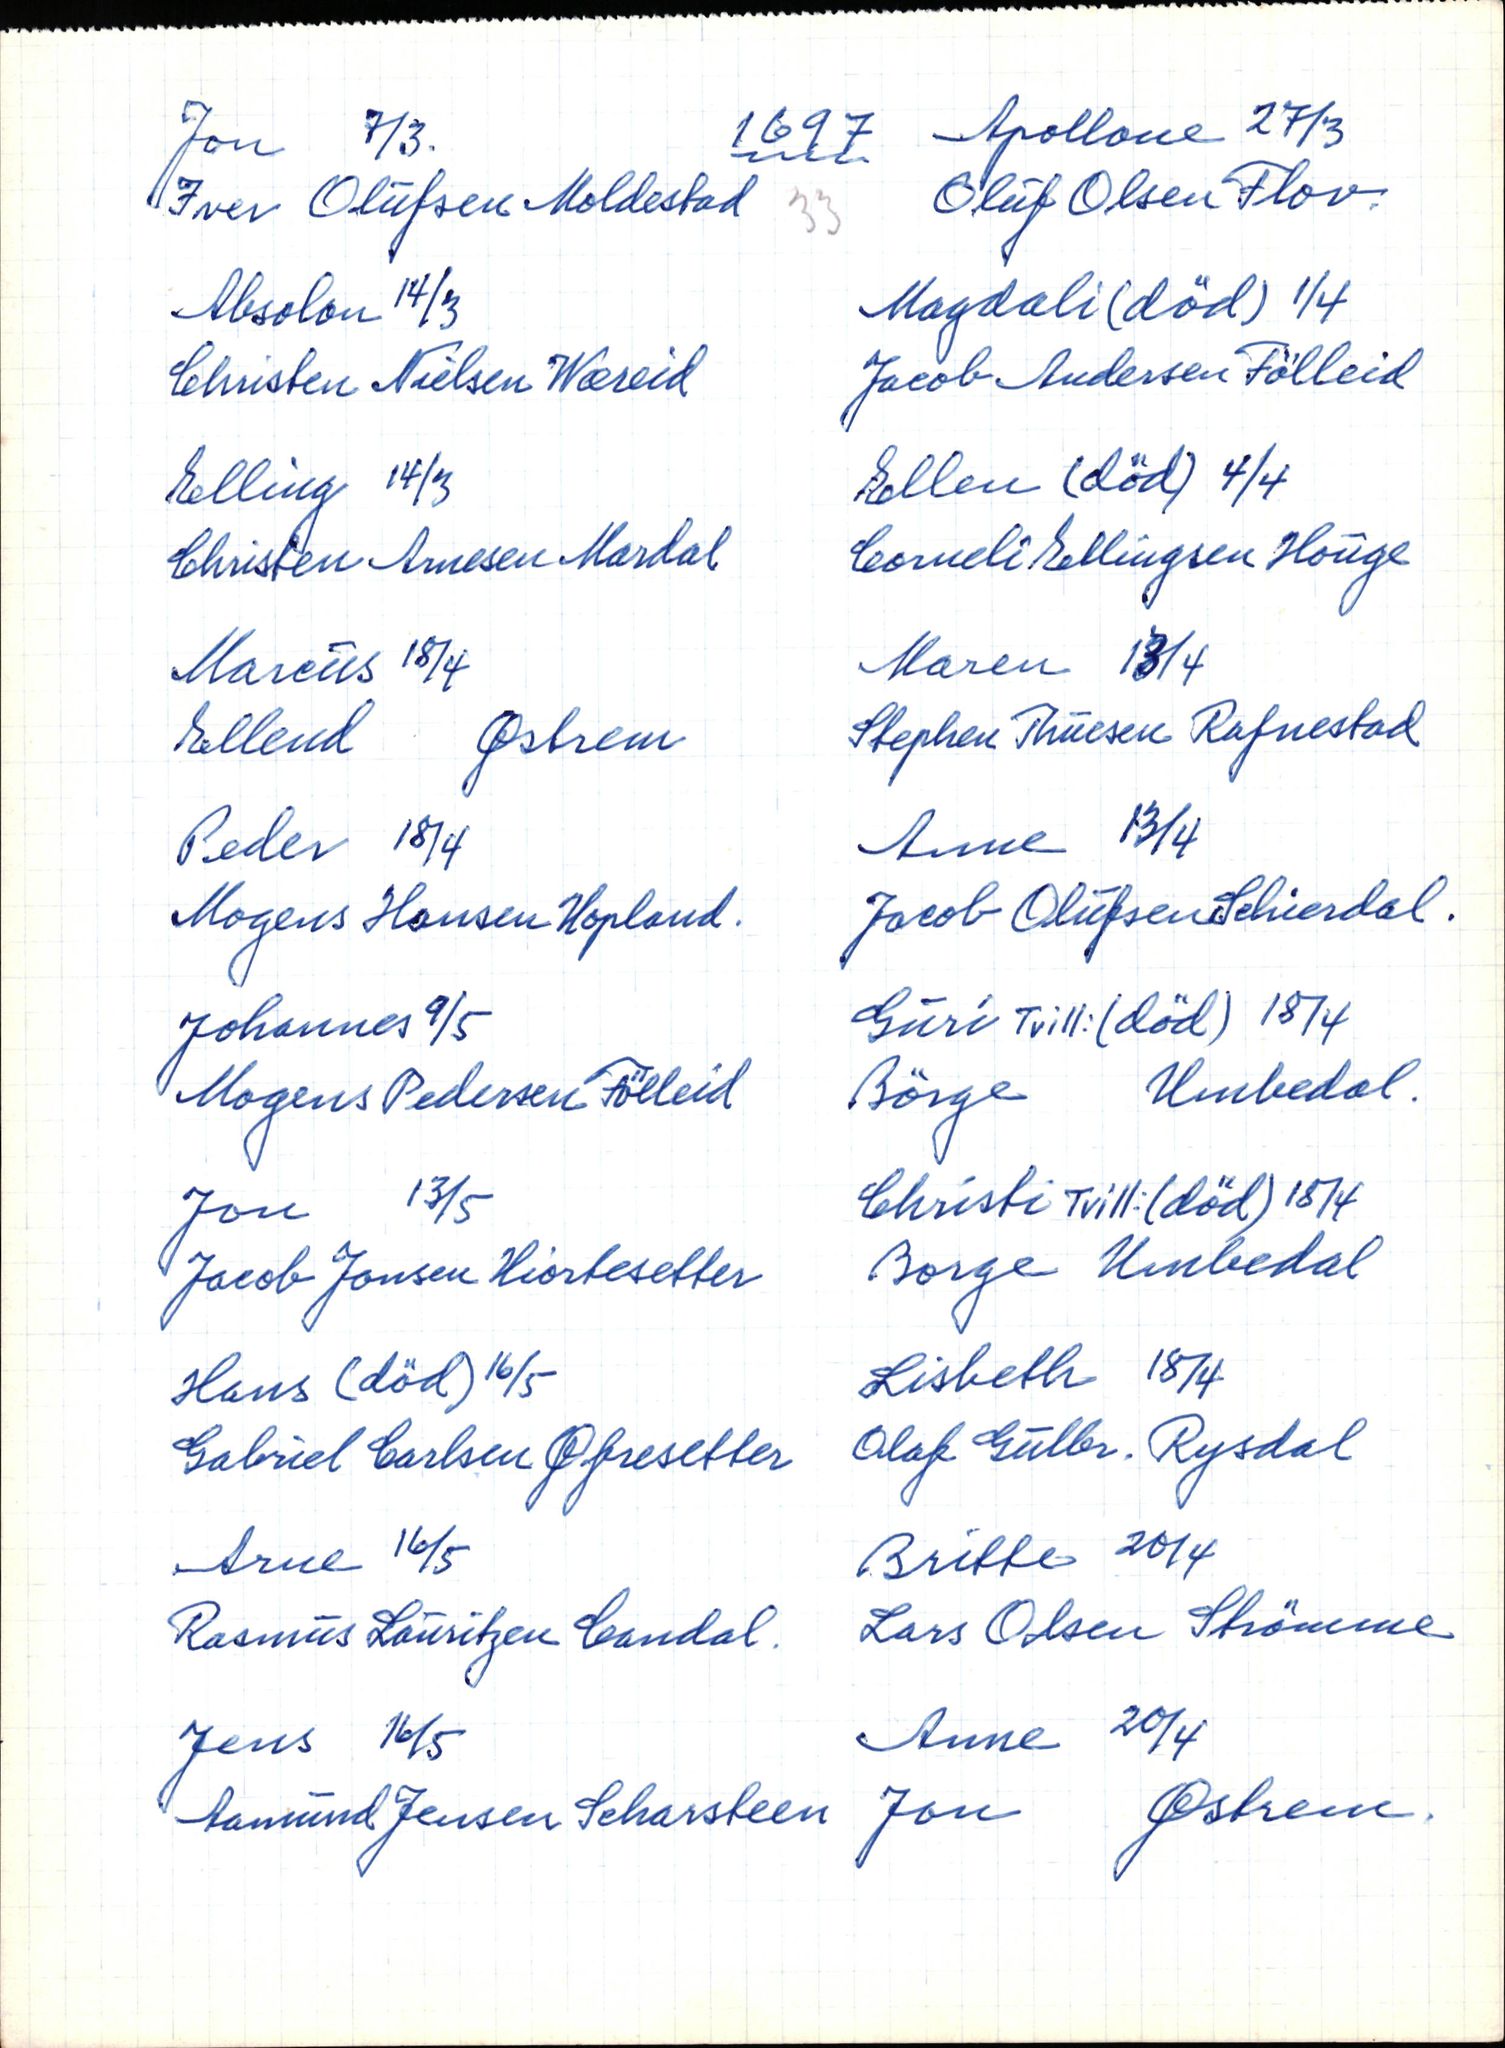 1697
33
Jon 7/3.
Iver Olüfsen Moldestad
Absolon 14/3
Christen Nielsen Wæreid
Elling 14/3
Christen Arnesen Mardal
Marcüs 18/4
Ellend Østrem
Peder 18/4
Mogens Hansen Hopland.
Johannes 9/5
Mogens Pedersen Fölleid
Jon 13/5
Jacob Jonsen Hiortesetter
Hans (död) 16/5
Gabriel Carlsen Øfresetter
Arne 16/5
Rasmüs Laüritzen Candal.
Jens 16/5
Aamünd Jensen Scharsteen
Apollone 27/3
Olüf Olsen Flov.
Magdali (död) 1/4
Jacob Andersen Fölleid
Ellen (död) 4/4
Corneli Ellingsen Hoüge
Maren 13/4
Stephen Thüesen Rafnestad
Anne 13/4
Jacob Olüfsen Schierdal.
Güri Tvill: (död) 18/4
Börge Umbedal.
Christi Tvill: (död) 18/4
Borge Umbedal
Lisbeth 18/4
Olaf Gülbr. Rysdal
Britte 20/4
Lars Olsen Strömme
Anne 20/4
Jon Østrem.